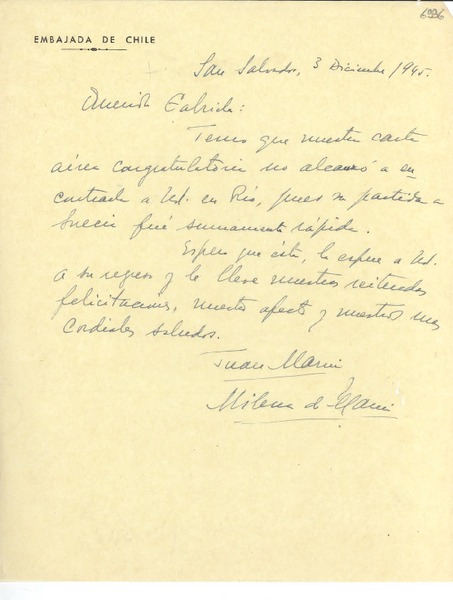 6936
EMBAJADA DE CHILE
San Salvador, 3 Diciembre/1945.
Querida Gabriela:
Temo que nuestra carta
aérea congratulatoria no alcanzó a en-
contrarla a Ud. en Río, pues su partida a
Suecia fué sumamente rápida.
Espero que ésta, la espere a Ud.
a su regreso y le lleve nuestras reiteradas
felicitaciones, nuestro afecto y nuestros mas
cordiales saludos.
Juan Marin
Milena de Marin